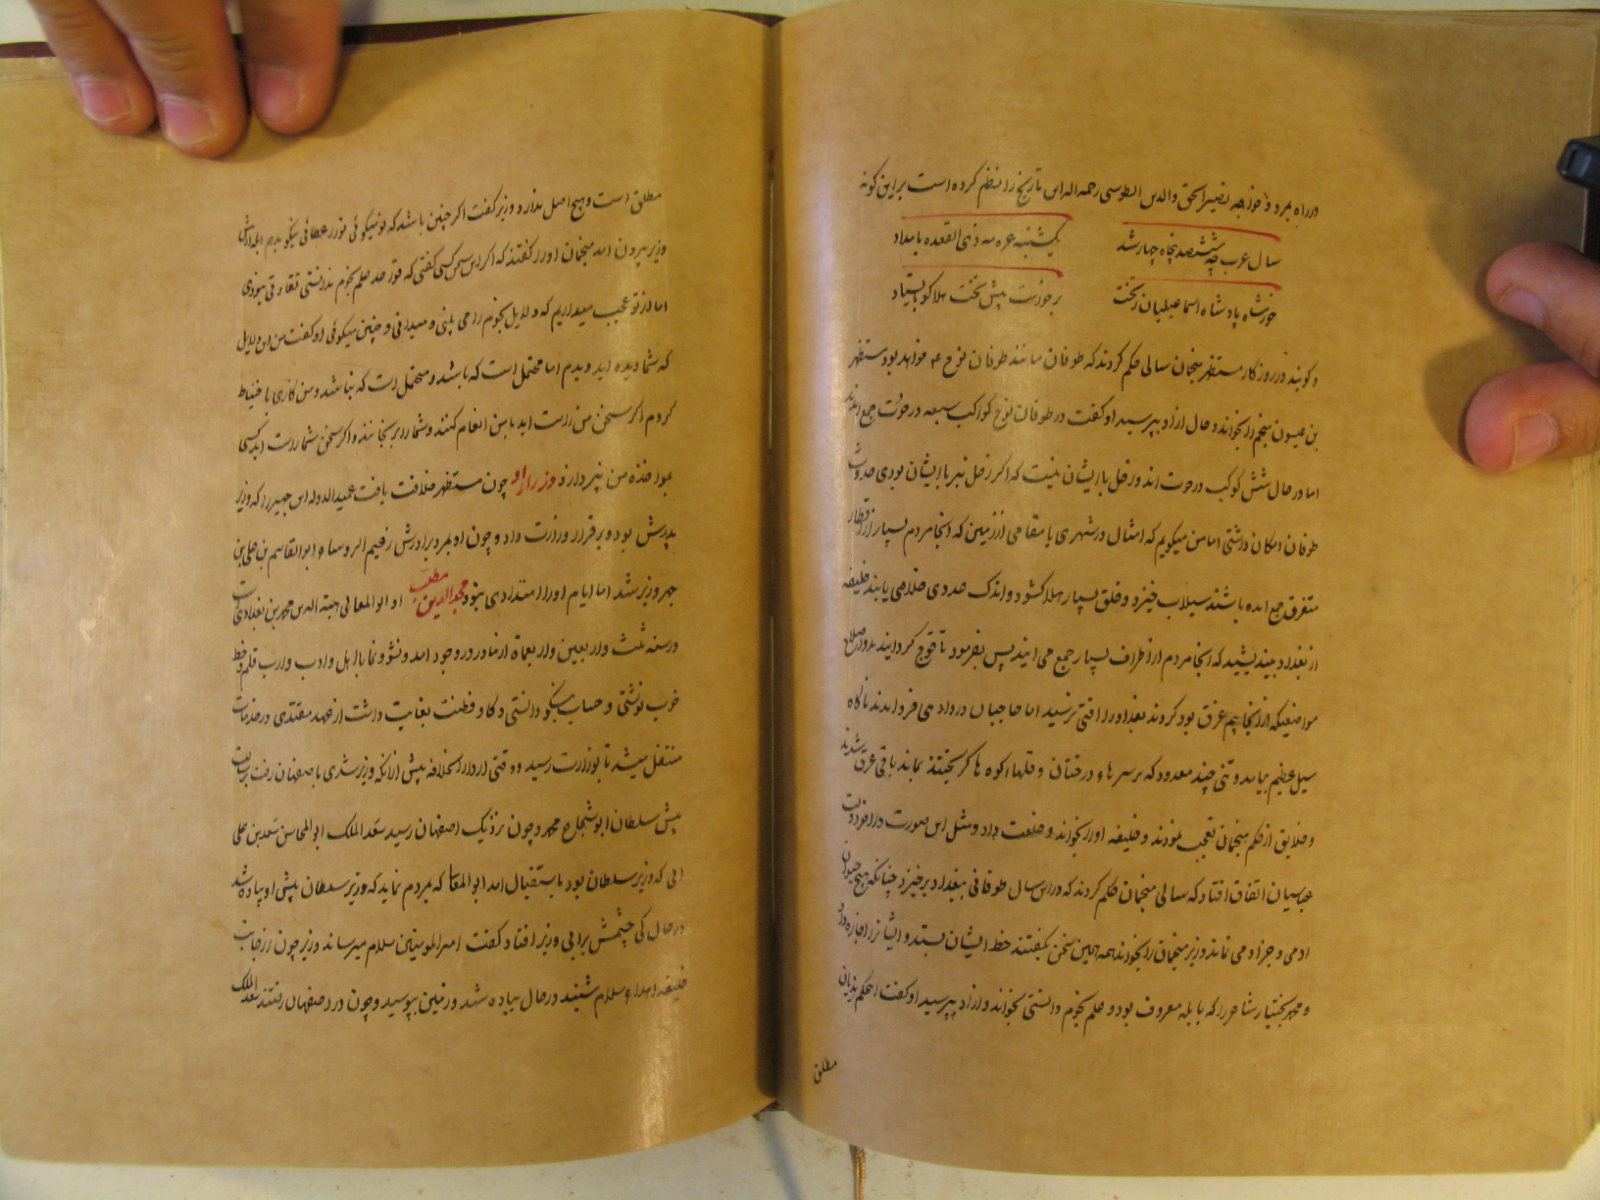 در راه بمرد و خواجه نصیر الحق والدین الطوسی رحمه الله این تاریخ را نظم کرده است بر این گونه
سال عرب چه ششصد پنجاه چهار شد یکشنبه غره مه ذی القعده بامداد
خورشاه پادشاه اسماعیلیان ز تخت برخواست پیش تخت هلاکو بایستاد
و کویند در روزکار مستظهر منجمان سالی حکم کردند که طوفان مانند طوفان نوح ع خواهد بود مستظهر
بن عیسون منجم را بخواند و حال ازاو بپرسید او کفت در طوفان نوح کواکب سبعه در حوت جمع امدند
اما در حال شش کوکب در حوت اند و زحل با ایشان نیست که اکر زحل نیز با ایشان بودی حدوث
طوفان امکان داشتی اما من میکویم که امثال در شهری یا مقامی از زمین که انجا مردم بسیار از اقطار
متفرق جمع امده باشند سیلاب خیزد و خلق بسیار هلاک شود و اندک عددی خلاصی یابند خلیفه
از بغداد بیندیشید که انجا مردم از اطراف بسیار جمع می ایند پس بفرمود تا کردانیدند و در اصلاح
مواضعیکه از انجا بیم غرق بود کردند بغداد را افتی نرسید اما حاجیان در وادی فرو امدند ناکاه
سیل عظیم بیامد و تنی چند معدود که بر سرهاء درختان و قلها کوه ها کریختند بماند باقی غرق شدند
و خلایق از حکم منجمان تعجب نمودند و خلیفه او را بخواند و خلعت داد و مثل این صورت در اخر دولت
عباسیان اتفاق افتاد که سالی منجمان حکم کردند که در این سال طوفانی ببغداد برخیزد چنانکه هیچ حیوان
ادمی و جز ادمی نماند وزیر منجمان را بخواند همه همین سخن بکفتند خط ایشان بستد و ایشانرا اجازه داد
و محمد بختیار شاعر را که بابله معروف بود و علم نجوم دانستی بخواند و ازاو بپرسید او کفت احکم هذیان
مطلق
مطلق است و هیچ اصل ندارد وزیر کفت اکر چنین باشد که تو میکوئی تو را عطائی نیکو بدهم
وزیر بیرون امد منجمان او را کفتند که اکر این سخن کسی کفتی که قواعد علم نجوم ندانستی تفاوتی نبودی
اما از تو عجب میداریم که دلایل نجوم را می بینی و میدانی و چنین میکوئی او کفت من این دلایل
که شما دیده اید دیدم اما محتمل است که باشد و محتمل است که نباشد و من کاری باحتیاط
کردم اکر سخن من راست اید با من انعام کنند و شما را برنجانند و اکر سخن شما راست اید کسی
بمواخذه من نپردازد وزراء او چون مستظهر خلافت یافت عمید الدوله ابن جهیر را که وزیر
پدرش بود برقرار وزارت داد و چون او بمرد برادرش زعیم الروساء ابو القاسم بن علی بن
جهیر وزیر شد اما ایام او را امتدادی نبود مجد الدین مطلب او ابو المعالی هبة الله بن محمد بن بغدادی است
در سنه ثلث واربعین واربعماة از مادر در وجود امد و نشو و نما با اهل وادب وارباب قلم و خط
خوب نوشتی و حساب نیکو دانستی و ذکاء و فطنت بغایت داشت از عهد مقتدی در خدمات
منتقل میشد تا بوزارت رسید و وقتی از دار الخلافه پیش ازانکه وزیر شدی باصفهان رفت برسالت
پیش سلطان ابو شجاع محمد و چون نزدیک اصفهان رسید سعد الملک ابو المحاسن سعد بن علی
ابی که وزیر سلطان بود باستقبال امد ابو المعالی که بمردم نماید که وزیر سلطان پیش او پیاده شد
در حال کی چشمش بر ابی وزیر افتاد کفت امیر المومنین سلام میرساند وزیر چون از جانب
خلیفه سلام شنید در حال پیاده شد و زمین ببوسید و چون در اصفهان رفتند سعد الملک